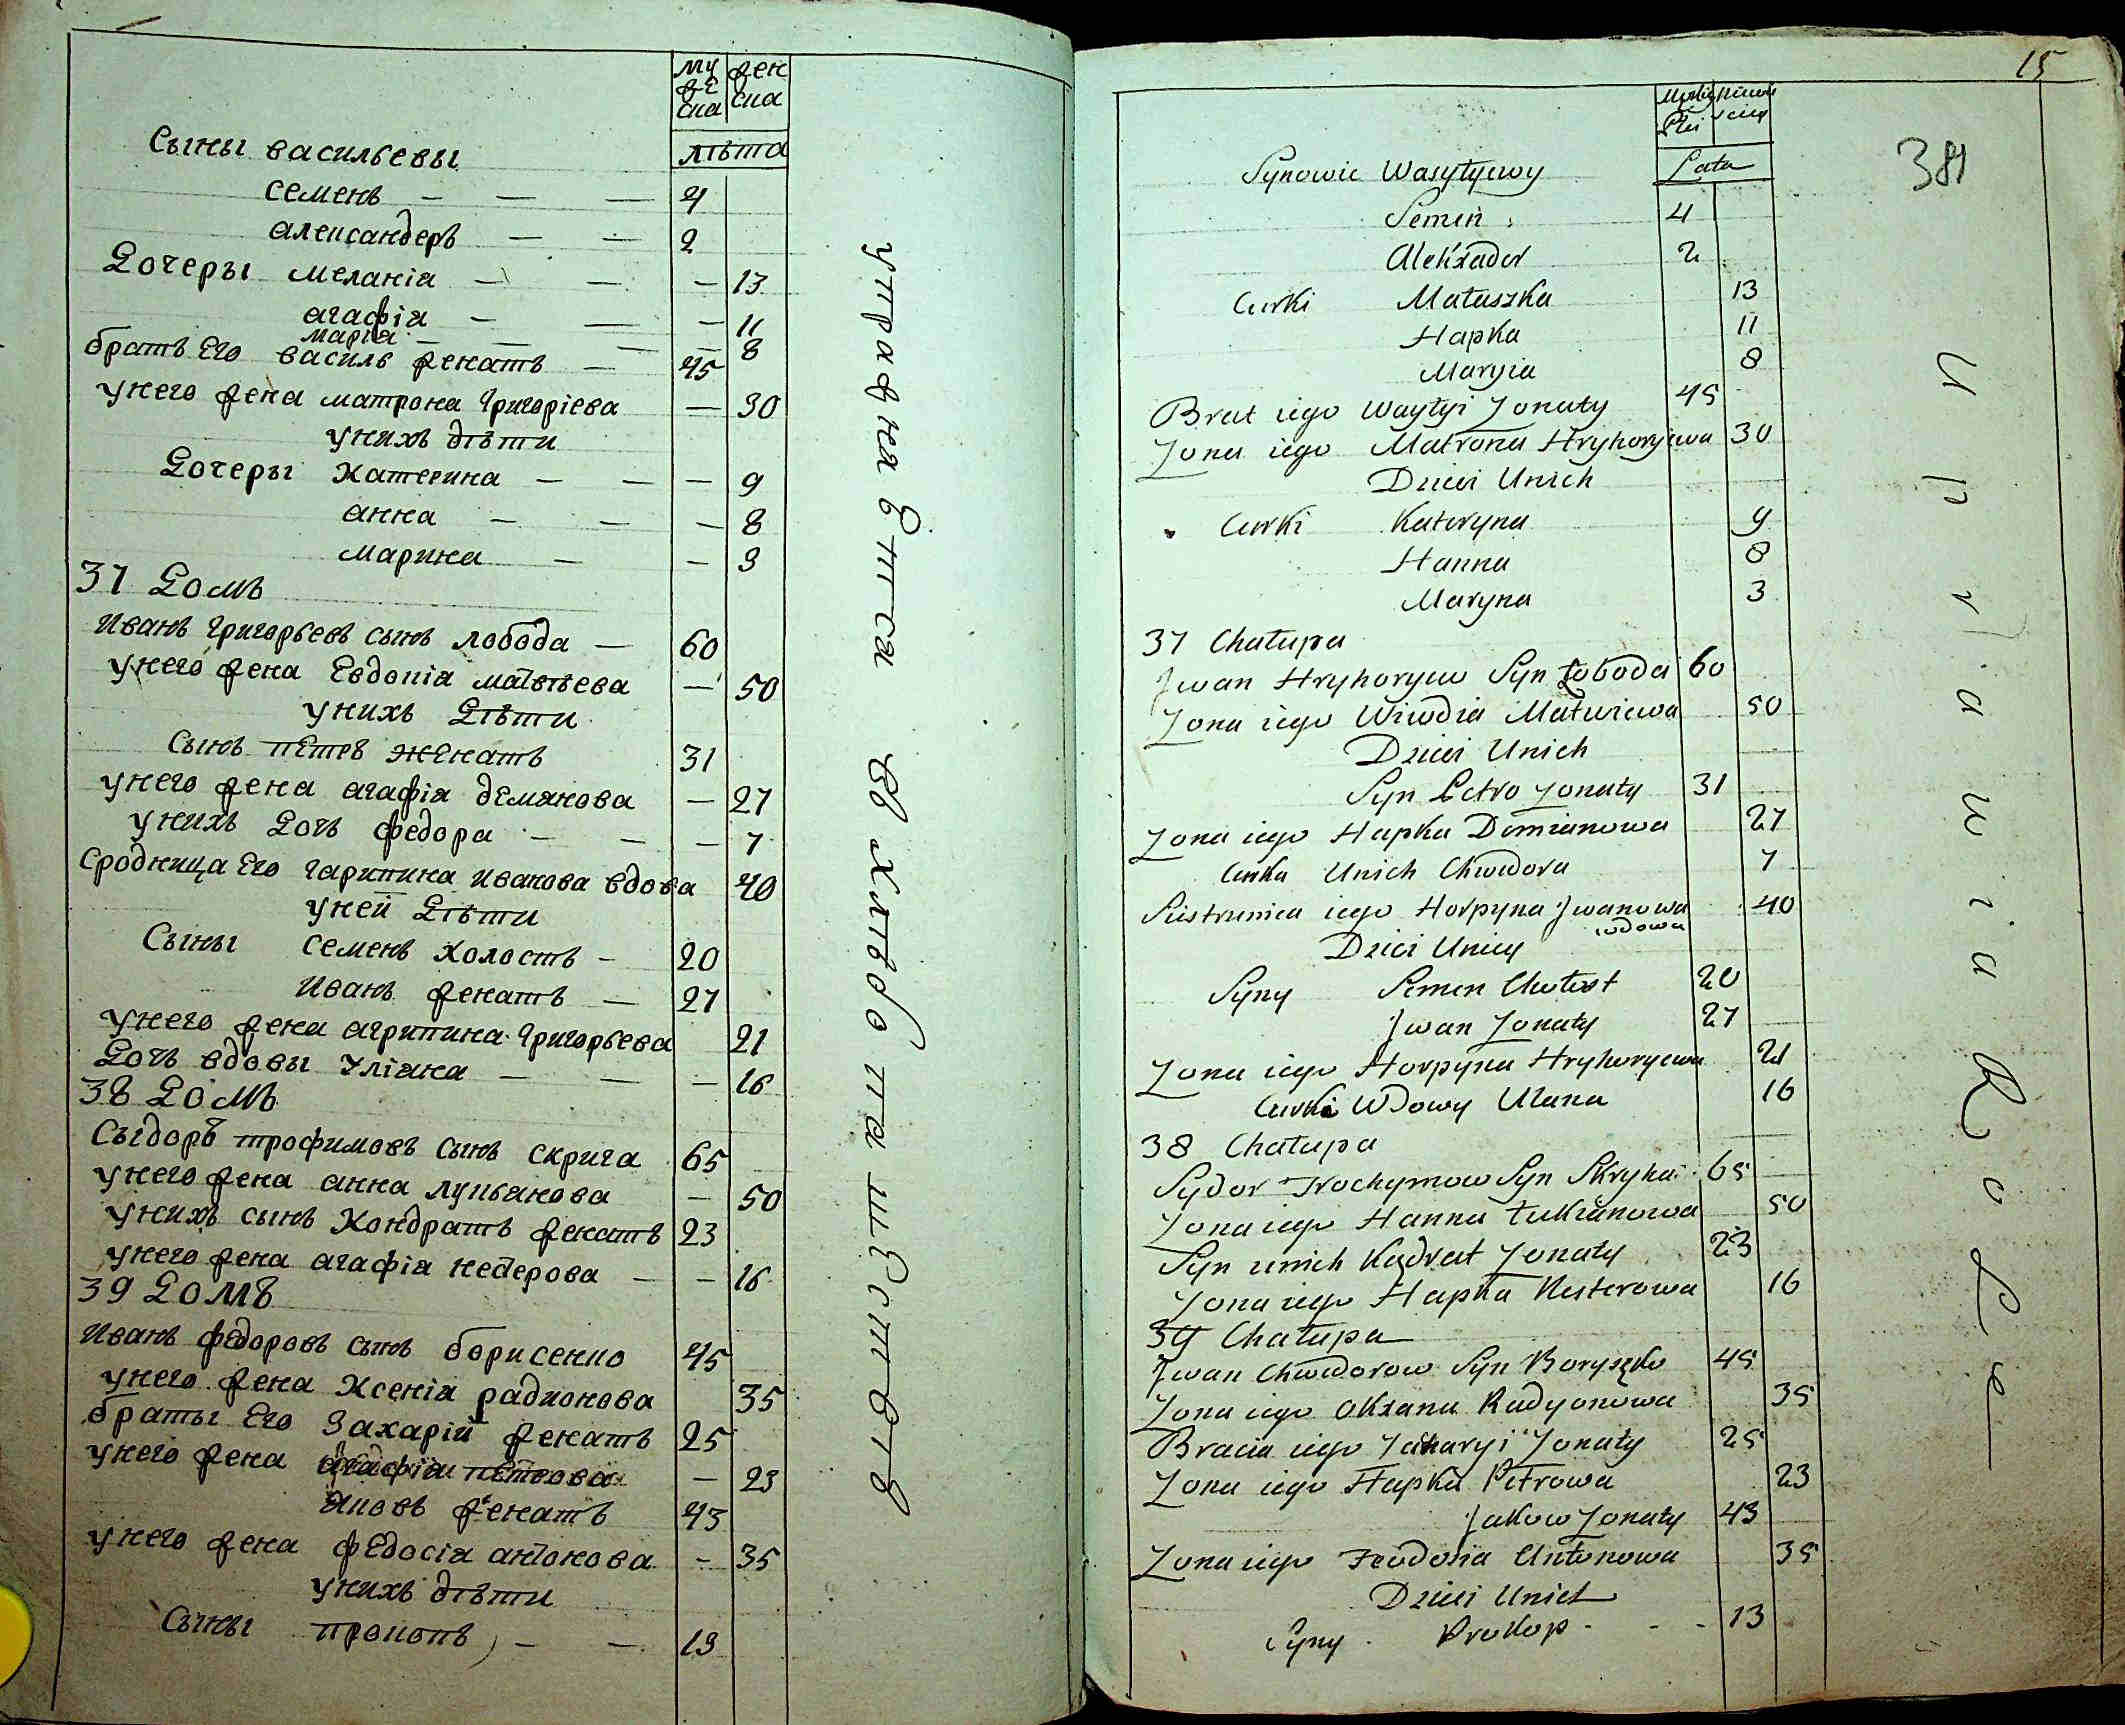 му
же
ска
жен
ска
лѣта
Сыны васильевы
семенъ — — — 4
александеръ — — 2
Дочеры меланіа — — — 13
агафіа — — — 11
маріа — — — 8
братъ Его василь женатъ — 45
унего жена матрона григоріева — 30
унихъ дѣти
Дочеры Катерина — — — 9
анна — — — 8
марина — — 3
37 Домъ
Иванъ григорьевъ сынъ лобода — 60
унего жена Евдокіа матвѣева — 50
унихъ Дѣти
Сынъ петръ женатъ 31
унего жена агафіа демянова — 27
унихъ Дочь федора — — — 7
Сродница Его гарпина иванова вдова 40
уней Дѣти
Сыны семенъ холостъ — 20
Иванъ женатъ — 27
унего жена агрипина григорьева 21
Дочь вдовы уліана — — — 16
38 Домъ
Сыдоръ трофимовъ сынъ скрига 65
унего жена анна лукьянова — 50
унихъ сынъ Кондратъ женатъ 23
унего жена агафіа нестерова — — 16
39 Домъ
Иванъ федоровъ сынъ борисенко 45
унего жена Ксеніа радионова 35
браты Его Захарій женатъ 25
унего жена агафіа петрова — 23
яковъ женатъ 43
унего жена федосіа антонова — 35
унихъ дѣти
Сыны прокопъ — — 13
упражняется въ хлѣбопашествѣ
15
381
Męskiey
Płci
Lata
Synowie Wasylyewy
Semen 4
Alexander 2
Curki Małaszka 13
Hapka 11
Maryia 8
Brat iego Wasylyi Zonaty 45
Zona iego Matrona Hryhoryiewa 30
Dzieci Unich
Curki Kateryna 9
Hanna 8
Maryna 3
37 Chałupa
Jwan Hryhoryew Syn Łoboda 60
Zona iego Wiwdia Matwiewa 50
Dzieci Unich
Syn Petro Zonaty 31
Zona iego Hapka Demianowa 27
Curka Unich Chwedora 7
Siestrzenica iego Horpyna Jwanowa 40
wdowa
Dzieci Uniey
Syny Semen Chołost 20
Jwan Zonaty 27
Zona iego Horpyna Hryhoryewa 21
Curka Wdowy Ulana 16
38 Chałupa
Sydor Trochymow Syn Skryha 65
Zona iego Hanna Łukianowa 50
Syn unich Kądrat Zonaty 23
Zona iego Hapka Nesterowa 16
39 Chałupa
Jwan Chwedorow Syn Boryseko 45
Zona iego Oksana Radyonowa 35
Bracia iego Zacharyi Zonaty 25
Zona iego Hapka Petrowa 23
Jakow Zonaty 43
Zona iego Feodosia Antonowa 35
Dzieci Unich
Syny Prokop - - - 13
Uprawia Role